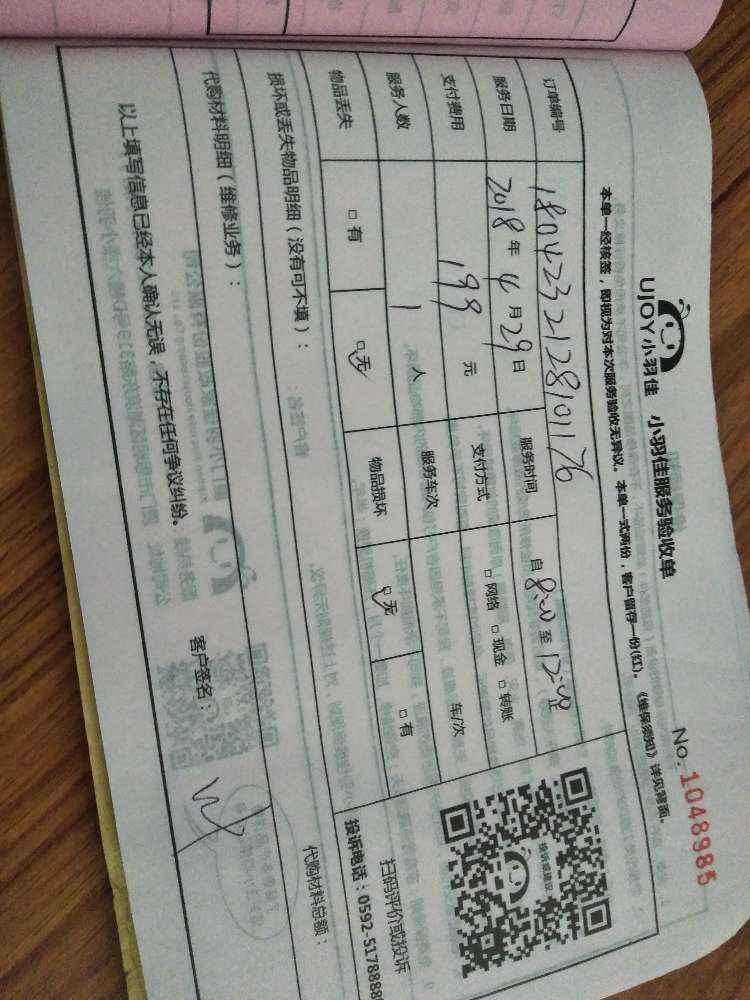 UJOY小羽佳 小羽佳服务验收单
No: 1048985
本单一经核签，即视为对本次服务验收无异议。本单一式两份，客户留存一份(红)。《维保须知》详见背面。
订单编号 1804232128101176
服务日期 2018年4月29日 服务时间 自8:00至12:00止
支付费用 199元 支付方式 □网络 □现金 □转账
服务人数 1人 服务车次 车/次
物品丢失 □有 □无 物品损坏 □无 □有
接诉或建议
扫码评价或投诉
投诉电话：0592-5178889
损坏或丢失物品明细（没有可不填）：
代购材料明细（维修业务）： 代购材料总额：
以上填写信息已经本人确认无误，不存在任何争议纠纷。 客户签名：